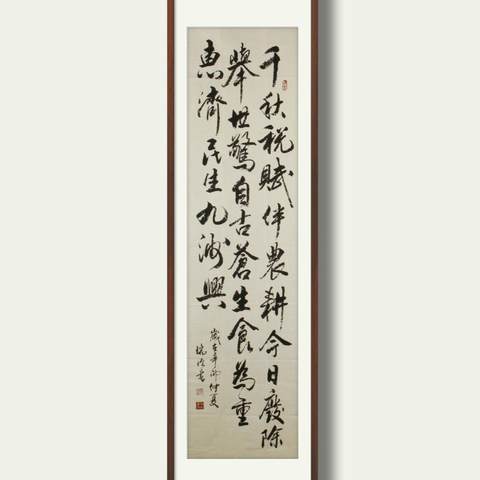 千秋稅賦伴農耕今日廢除
舉世驚自古蒼生食為重
惠濟民生九洲興
歲在辛卯仲夏
書